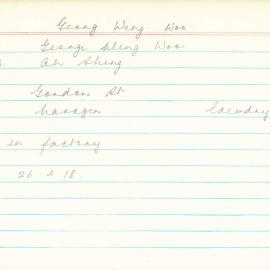 Georg Wing Woo
George Wing Woo
Ah Shing
Gordon St
Manager. Laundry
in factory
26 . 2 18.